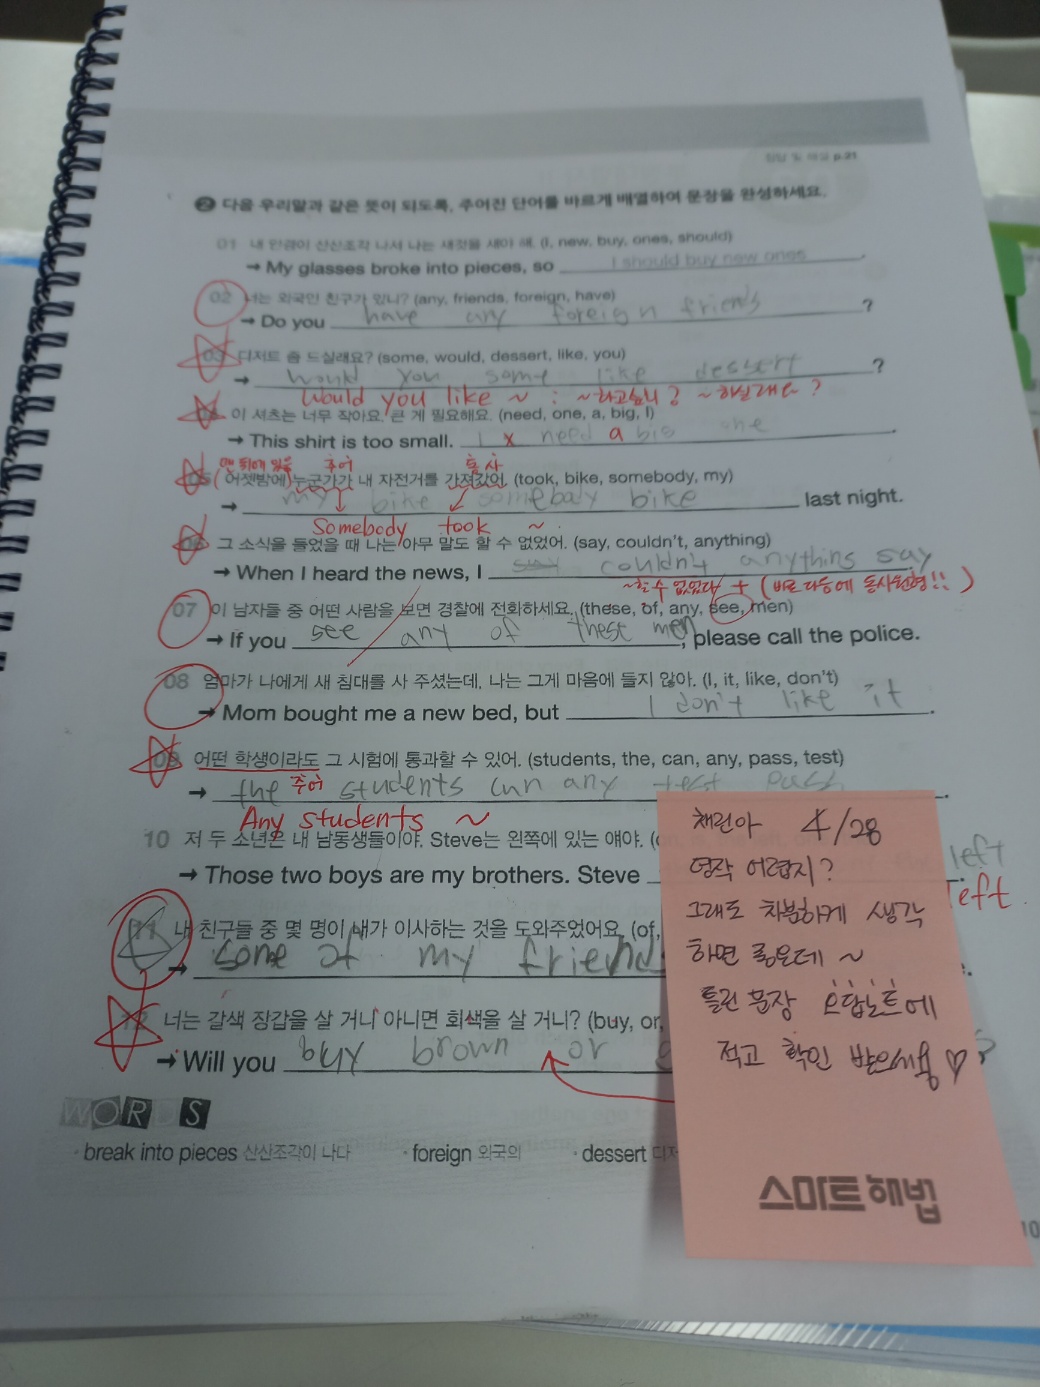 정답 및 해설 p.21
2 다음 우리말과 같은 뜻이 되도록, 주어진 단어를 바르게 배열하여 문장을 완성하세요.
01 내 안경이 산산조각 나서 나는 새것을 사야 해. (I, new, buy, ones, should)
→ My glasses broke into pieces, so I should buy new ones.
02 너는 외국인 친구가 있니? (any, friends, foreign, have)
→ Do you have any foreign friends ?
03 디저트 좀 드실래요? (some, would, dessert, like, you)
→ would you some like dessert ?
Would you like ~ : ~하고싶니? ~하실래요?
이 셔츠는 너무 작아요. 큰 게 필요해요. (need, one, a, big, I)
→ This shirt is too small. I x need a big one
맨 뒤에 있음 주어 동사
05 (어젯밤에) 누군가가 내 자전거를 가져갔어. (took, bike, somebody, my)
→ my bike somebady bike last night.
Somebody took ~
그 소식을 들었을 때 나는 아무 말도 할 수 없었어. (say, couldn't, anything)
→ When I heard the news, I couldn't anything say
~할 수 없었다 + (바로 다음에 동사원형!!)
07 이 남자들 중 어떤 사람을 보면 경찰에 전화하세요. (these, of, any, see, men)
→ If you see any of these men, please call the police.
08 엄마가 나에게 새 침대를 사 주셨는데, 나는 그게 마음에 들지 않아. (I, it, like, don't)
→ Mom bought me a new bed, but I don't like it.
09 어떤 학생이라도 그 시험에 통과할 수 있어. (students, the, can, any, pass, test)
→ the 주어 students can any test pass.
Any students ~
10 저 두 소년은 내 남동생들이야. Steve는 왼쪽에 있는 얘야. (
→ Those two boys are my brothers. Steve left
left
11 내 친구들 중 몇 명이 내가 이사하는 것을 도와주었어요. (of,
→ some of my friends
12 너는 갈색 장갑을 살 거니 아니면 회색을 살 거니? (buy, or,
→ Will you buy brown or
WORDS
· break into pieces 산산조각이 나다 · foreign 외국의 · dessert 디저
채린아 4/28
영작 어렵지?
그래도 차분하게 생각
하면 좋은데 ~
틀린 문장 오답노트에
적고 확인 받으세용 ♡
스마트해법
10